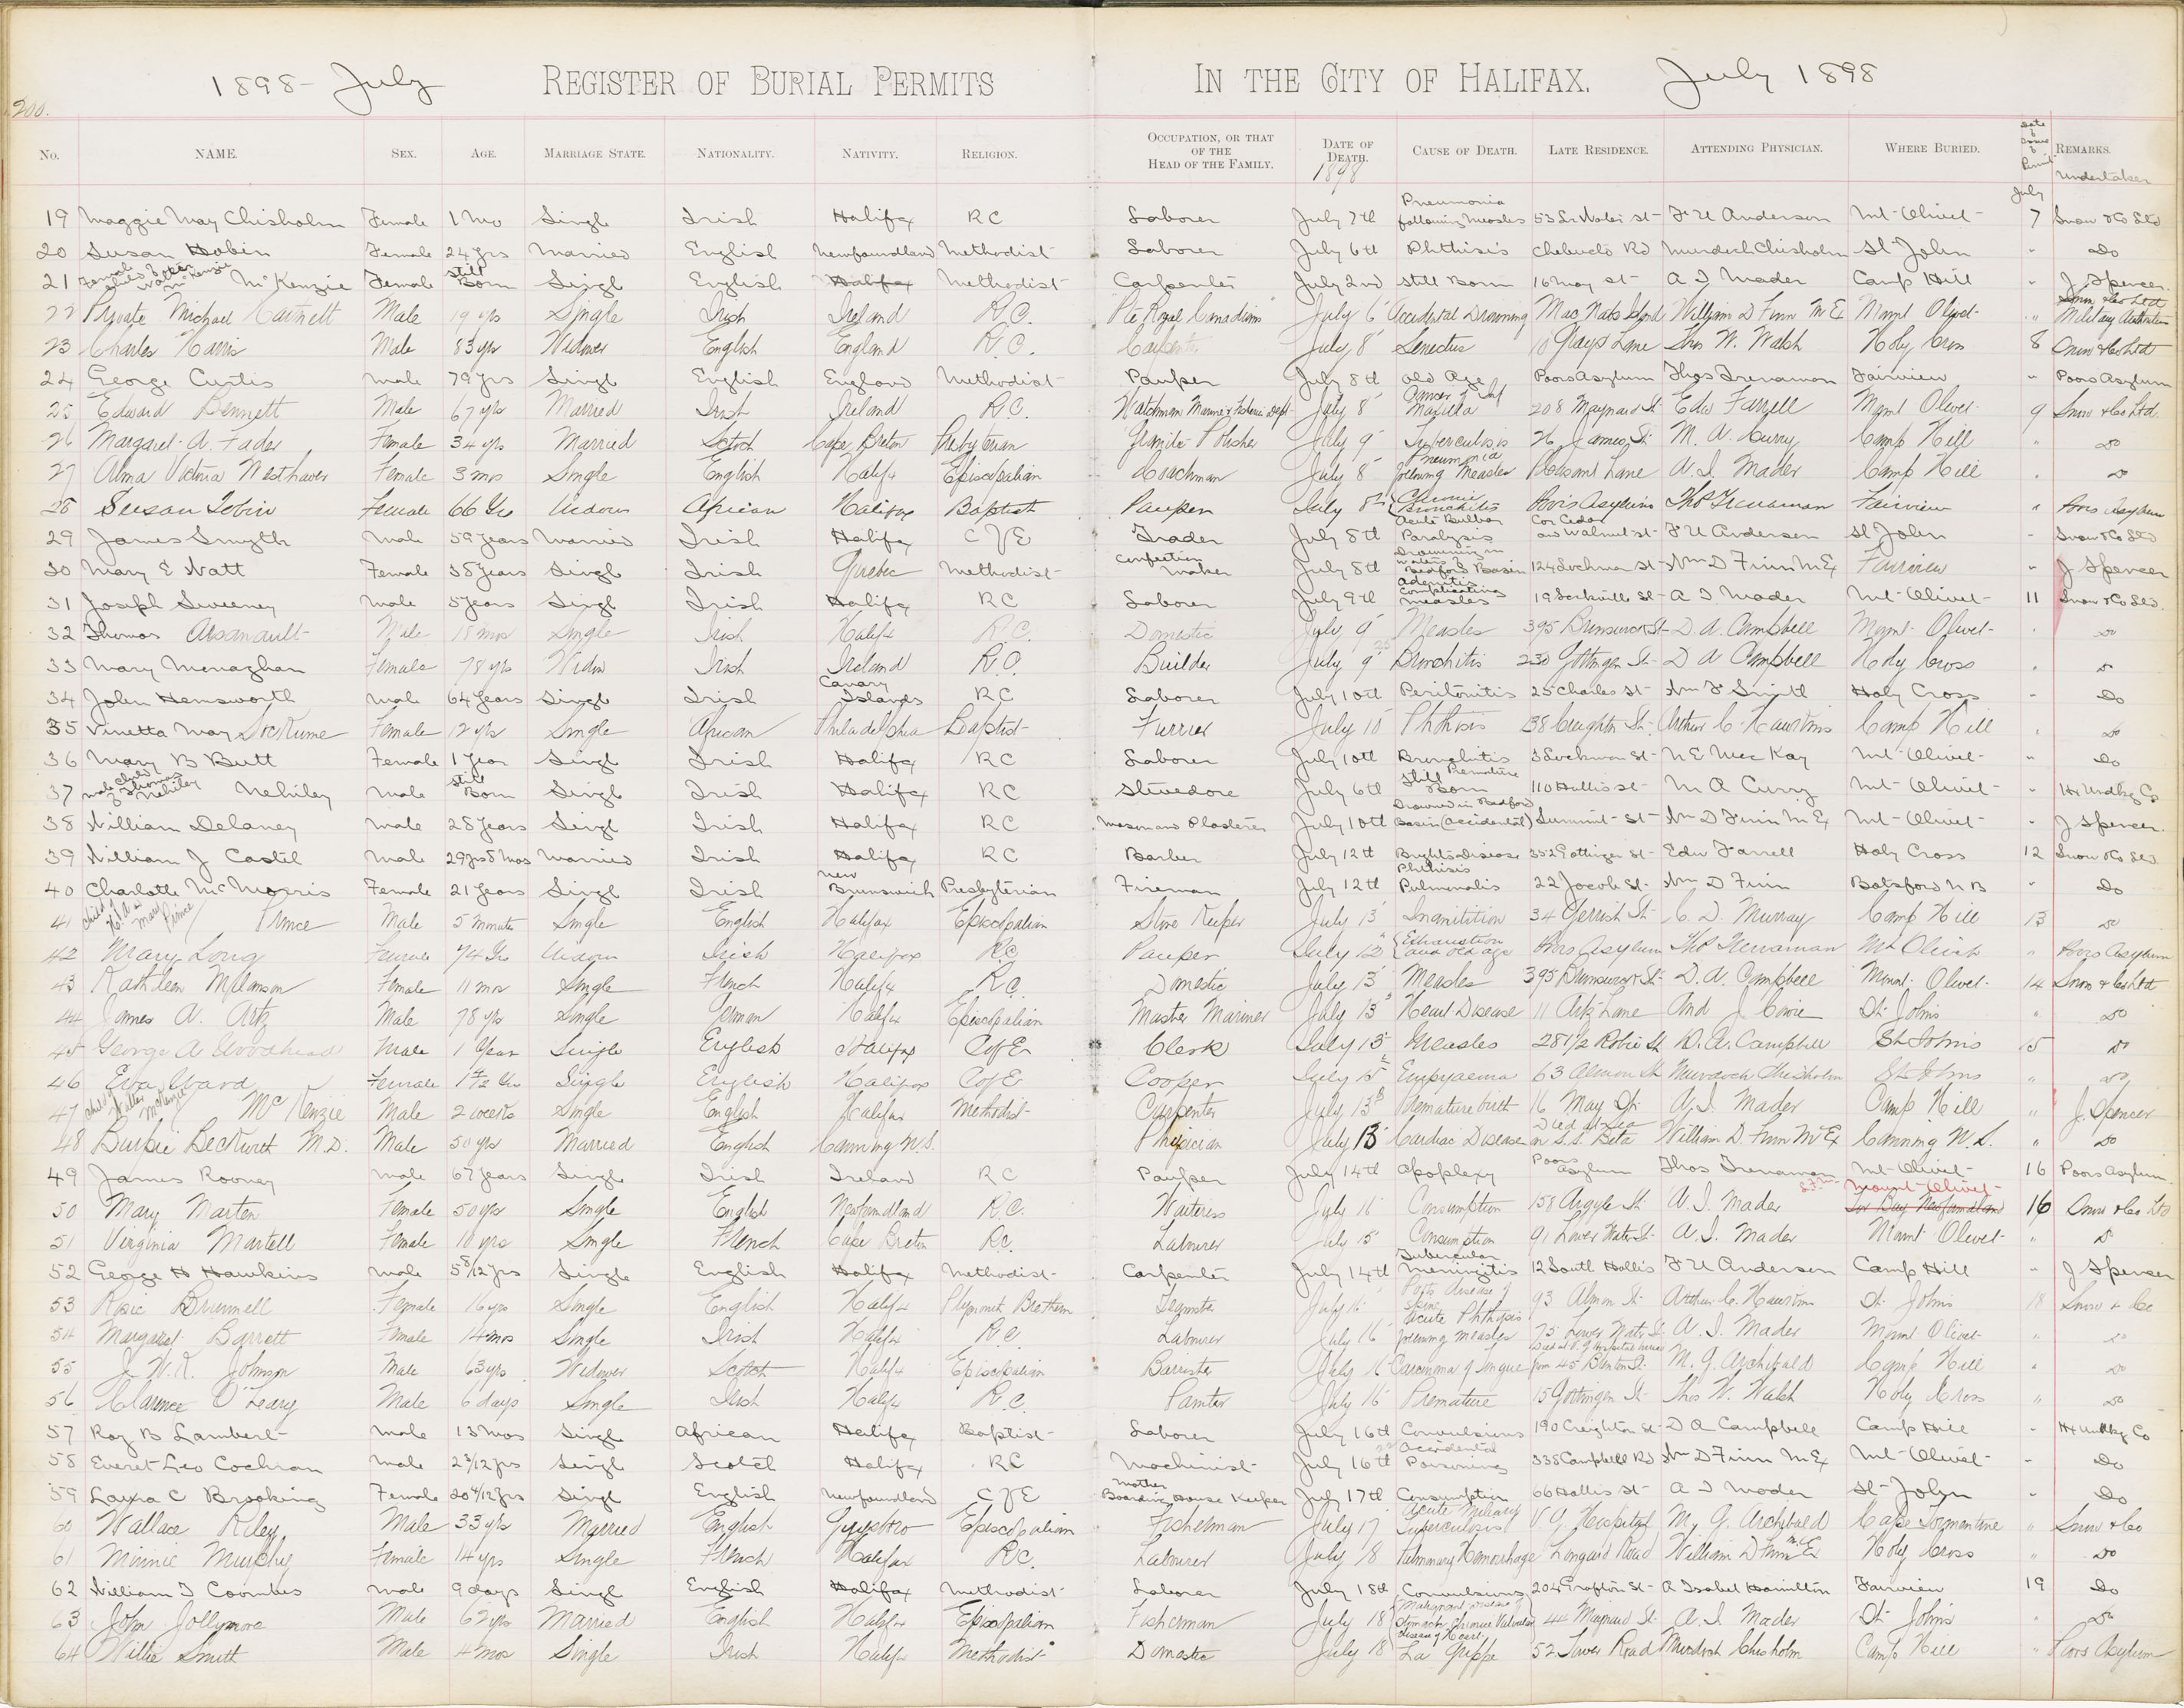 1898 - July REGISTER OF BURIAL PERMITS IN THE CITY OF HALIFAX. July 1898
200.
No. NAME. SEX. AGE. MARRIAGE STATE. NATIONALITY. NATIVITY. RELIGION. OCCUPATION, OR THAT OF THE HEAD OF THE FAMILY. DATE OF DEATH. 1898 CAUSE OF DEATH. LATE RESIDENCE. ATTENDING PHYSICIAN. WHERE BURIED. Date of Permit July REMARKS. Undertaker
19 Maggie May Chisholm Female 1 Mo Single Irish Halifax RC Laborer July 7th Pneumonia following Measles 53 Lr Water St- F U Anderson Mt- Olivet- 7 Snow & Co Ltd
20 Susan Hobin Female 24 yrs Married English Newfoundland Methodist- Laborer July 6th Phthisis Chebucto Rd Murdoch Chisholm St John " Do
21 McKenzie Female Still Born Single English Halifax Methodist- Carpenter July 2nd Still Born 16 May St- A I Mader Camp Hill " J Spencer
22 Private Michael Hartnett Male 19 yrs Single Irish Ireland R.C. Pte Royal Canadians July 6 Accidental Drowning Mac Nabs Island William D Finn M Ex Mount Olivet- " Snow & Co Ltd Military
23 Charles Harris Male 83 yrs Widower English England R.C. Carpenter July 8 Senectus 10 Lane Thos W. Walsh Holy Cross 8 Snow & Co Ltd
24 George Curtis Male 79 yrs Single English England Methodist- Pauper July 8th Old Age Poors Asylum Thos Trenaman Fairview " Poors Asylum
25 Edward Bennett Male 67 yrs Married Irish Ireland R.C. Watchman Marine & Fisheries Dept- July 8 Cancer of Maxilla 208 Maynard St Edw Farrell Mount Olivet- 9 Snow & Co Ltd.
26 Margaret A. Fader Female 34 yrs Married Scotch Cape Breton Presbyterian Granite Polisher July 9 Tuberculosis 26 James St M. A. Curry Camp Hill " Do
27 Alma Victoria Westhaver Female 3 mos Single English Halifx Episcopalian Coachman July 8 Pneumonia following Measles Pleasant Lane A. I. Mader Camp Hill " Do
28 Susan Tobin Female 66 Yrs Widow African Halifax Baptist Pauper July 8th Chronic Bronchitis Poors Asylum Thos Trenaman Fairview " Poors Asylum
29 James Smyth Male 59 years Married Irish Halifax C of E Trader July 8th Acute Bulbar Paralysis Cor Cedar and Walnut St- F U Anderson St John - Snow & Co Ltd
30 Mary E Watt Female 38 years Single Irish Quebec Methodist- Confection maker July 8th Drowning in waters of Bedford Basin 124 Lockman St- Wm D Finn M Ex Fairview " J Spencer
31 Joseph Sweeney Male 5 years Single Irish Halifax RC Laborer July 9th Adenitis Complicating Measles 19 Sackville St- A I Mader Mt- Olivet- 11 Snow & Co Ltd.
32 Thomas Arsanault- Male 18 mos Single Irish Halifx R.C. Domestic July 9 Measles 395 Brunswick St- D. A. Campbell Mount Olivet- " Do
33 Mary Monaghan Female 78 yrs Widow Irish Ireland R.C. Builder July 9 Bronchitis 230 Gottingen St- D A Campbell Holy Cross " Do
34 John Hemsworth Male 64 years Single Irish Canary Islands RC Laborer July 10th Peritonitis 25 Charles St- Wm F Smith Holy Cross - Do
35 Vinetta May Female 12 yrs Single African Philadelphia Baptist- Furrier July 10 Phthisis 38 Creighton St- Arthur C. Hawkins Camp Hill " Do
36 Mary B Butt Female 1 Year Single Irish Halifax RC Laborer July 10th Bronchitis Lockman St- N E Mac Kay Mt- Olivet- " Do
37 male child of Thomas Nehiley Nehiley Male Still Born Single Irish Halifax RC Stevedore July 6th Still Premature Born 110 Hollis St- M A Curry Mt- Olivet- " Hx Undkg Co
38 William Delaney Male 28 years Single Irish Halifax RC Mason and Plasterer July 10th Drowned in Bedford Basin (Accidental) Summit- St- Wm D Finn M Ex Mt- Olivet- " J Spencer.
39 William J Castel Male 29 yrs 5 mos Married Irish Halifax RC Barber July 12th Brights Disease 352 Gottingen St- Edw Farrell Holy Cross 12 Snow & Co Ltd
40 Charlotte McMorris Female 21 years Single Irish New Brunswick Presbyterian Fireman July 12th Phthisis Pulmonalis 22 Jacob St- Wm D Finn Botsford N B " Do
41 Prince Male 5 minutes Single English Halifax Episcopalian Store Keeper July 13 Inanitition 34 Gerrish St- C. D. Murray Camp Hill 13 Do
42 Mary Long Female 74 Yrs Widow Irish Halifax R.C. Pauper July 12 Exhaustion and old age Poors Asylum Thos Trenaman Mt Olivet " Poors Asylum
43 Kathleen Melanson Female 11 mos Single French Halifx R.C. Domestic July 13 Measles 395 Brunswick St- D. A. Campbell Mount Olivet- 14 Snow & Co Ltd
44 James A. Artz Male 78 yrs Single German Halifx Episcopalian Master Mariner July 13 Heart Disease 11 Artz Lane And J. Cowie St- Johns " Do
45 George A Woodhead Male 1 Year Single English Halifax C of E Clerk July 13 Measles 281 1/2 Robie St D. A. Campbell St Johns 15 Do
46 Eva Ward Female Single English Halifax C of E Cooper July 15 Empyaema 63 Almon St Murdoch Chisholm St Johns " Do
47 child of Walter McKenzie McKenzie Male 2 weeks Single English Halifax Methodist- Carpenter July 13th Premature birth 16 May St- A. I. Mader Camp Hill " J. Spencer
48 Burpie Beckwith M.D. Male 50 yrs Married English Canning N.S. Physician July 13 Cardiac Disease Died at Sea on S.S. Beta William D. Finn M Ex Canning N.S. " Do
49 James Rooney Male 67 years Single Irish Ireland RC Pauper July 14th Apoplexy Poors Asylum Thos Trenaman Mt- Olivet- 16 Poors Asylum.
50 Mary Marten Female 50 yrs Single English Newfoundland R.C. Waitress July 16 Consumption 158 Argyle St A. I. Mader Mount- Olivet- Tor Bay Newfoundland 16 Snow & Co Ltd
51 Virginia Martell Female 10 yrs Single French Cape Breton R.C. Labourer July 15 Consumption 91 Lower Water St- A. I. Mader Mount Olivet- " Do
52 George H Hawkins Male 5 8/12 yrs Single English Halifax Methodist- Carpenter July 14th Tubercular Meningitis 12 South Hollis F U Anderson Camp Hill " J Spencer
53 Rosie Brummell Female 16 yrs Single English Halifx Plymouth Brethern Teamster July 16 Potts disease of spine 93 Almon St- Arthur C. Hawkins St- Johns 18 Snow & Co
54 Margaret Barrett Female 14 mos Single Irish Halifx R.C. Labourer July 16 Acute Phthisis following measles 75 Lower Water St A. I. Mader Mount Olivet- " Do
55 J. W. K. Johnson Male 63 yrs Widower Scotch Halifx Episcopalian Barrister July 16 Carcinoma of tongue from 45 Brenton St. M. G. Archibald Camp Hill " Do
56 Clarence O'Leary Male 6 days Single Irish Halifx R.C. Painter July 16 Premature 15 Gottingen St- Thos W. Walsh Holy Cross " Do
57 Roy B Lambert- Male 13 Mos Single African Halifax Baptist- Laborer July 16th Convulsions 190 Creighton St- D A Campbell Camp Hill " Hx Undkg Co
58 Everet Leo Cochran Male 2 3/12 yrs Single Scotch Halifax RC Machinist- July 16th Accidental Poisoning 335 Campbell Rd Wm D Finn M Ex Mt- Olivet- - Do
59 Laura C Brooking Female 20 4/12 yrs Single English Newfoundland C of E Mother Boarding House Keeper July 17th Consumption 66 Hollis St- A I Mader St- John " Do
60 Wallace Riley Male 33 yrs Married English Guysboro Episcopalian Fisherman July 17 Acute Miliary Tuberculosis V. G. Hospital M. G. Archibald Cape Tormentine " Snow & Co
61 Minnie Murphy Female 14 yrs Single French Halifax R.C. Labourer July 18 Pulmonary Hemorrhage Longard Road William D Finn M. Ex Holy Cross " Do
62 William I Coombes Male 9 days Single English Halifax Methodist- Laborer July 18th Convulsions 204 Grafton St- A Isabel Hamilton Fairview 19 Do
63 John Jollymore Male 62 yrs Married English Halifx Episcopalian Fisherman July 18 Malignant disease of Stomach, Chronic Valvular disease of Heart. 44 Maynard St- A. I. Mader St- Johns " Do
64 Willie Smith Male 4 mos Single Irish Halifx Methodist- Domestic July 18 La Grippe 52 Tower Road Murdoch Chisholm Camp Hill " Poors Asylum